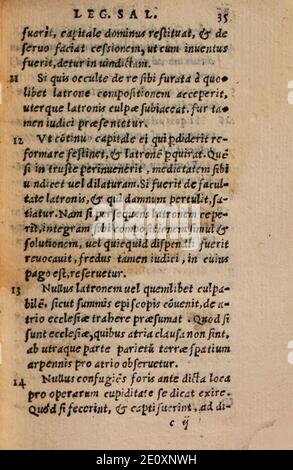 LEG. SAL. 35
fuerit, capitale dominus restituat, & de
seruo faciat cessionem, ut cum inuentus
fuerit, detur in uindictam.
11 Si quis occulte de re sibi furata à quo-
libet latrone compositionem acceperit,
uterque latronis culpæ subiaceat. fur ta-
men iudici præsentetur.
12 Vt cõtinu capitale ei qui pdiderit re-
formare festinet, & latronē pquirat. Quē
si in truste peruenerit, medietatem sibi
uindicet uel dilaturam. Si fuerit de facul-
tate latronis, & qui damnum pertulit, sa-
tiatur. Nam si per quem latronem cepe-
rit, integram sibi compositionem simul &
solutionem, uel quicquid dispendij fuerit
reuocauit, fredus tamen iudici, in cuius
pago est, reseruetur.
13 Nullus latronem uel quemlibet culpa-
bilē, sicut summis episcopis cõuenit, de a-
trio ecclesiæ trahere præsumat. Quod si
sunt ecclesiæ, quibus atria clausa non sint,
ab utraque parte parietū terræ spatium
arpennis pro atrio obseruetur.
14 Nullus confugiēs foris ante dicta loca
pro operarum cupiditate se dicat exire.
Quòd si fecerint, & capti fuerint, ad di-
c ij
alamy